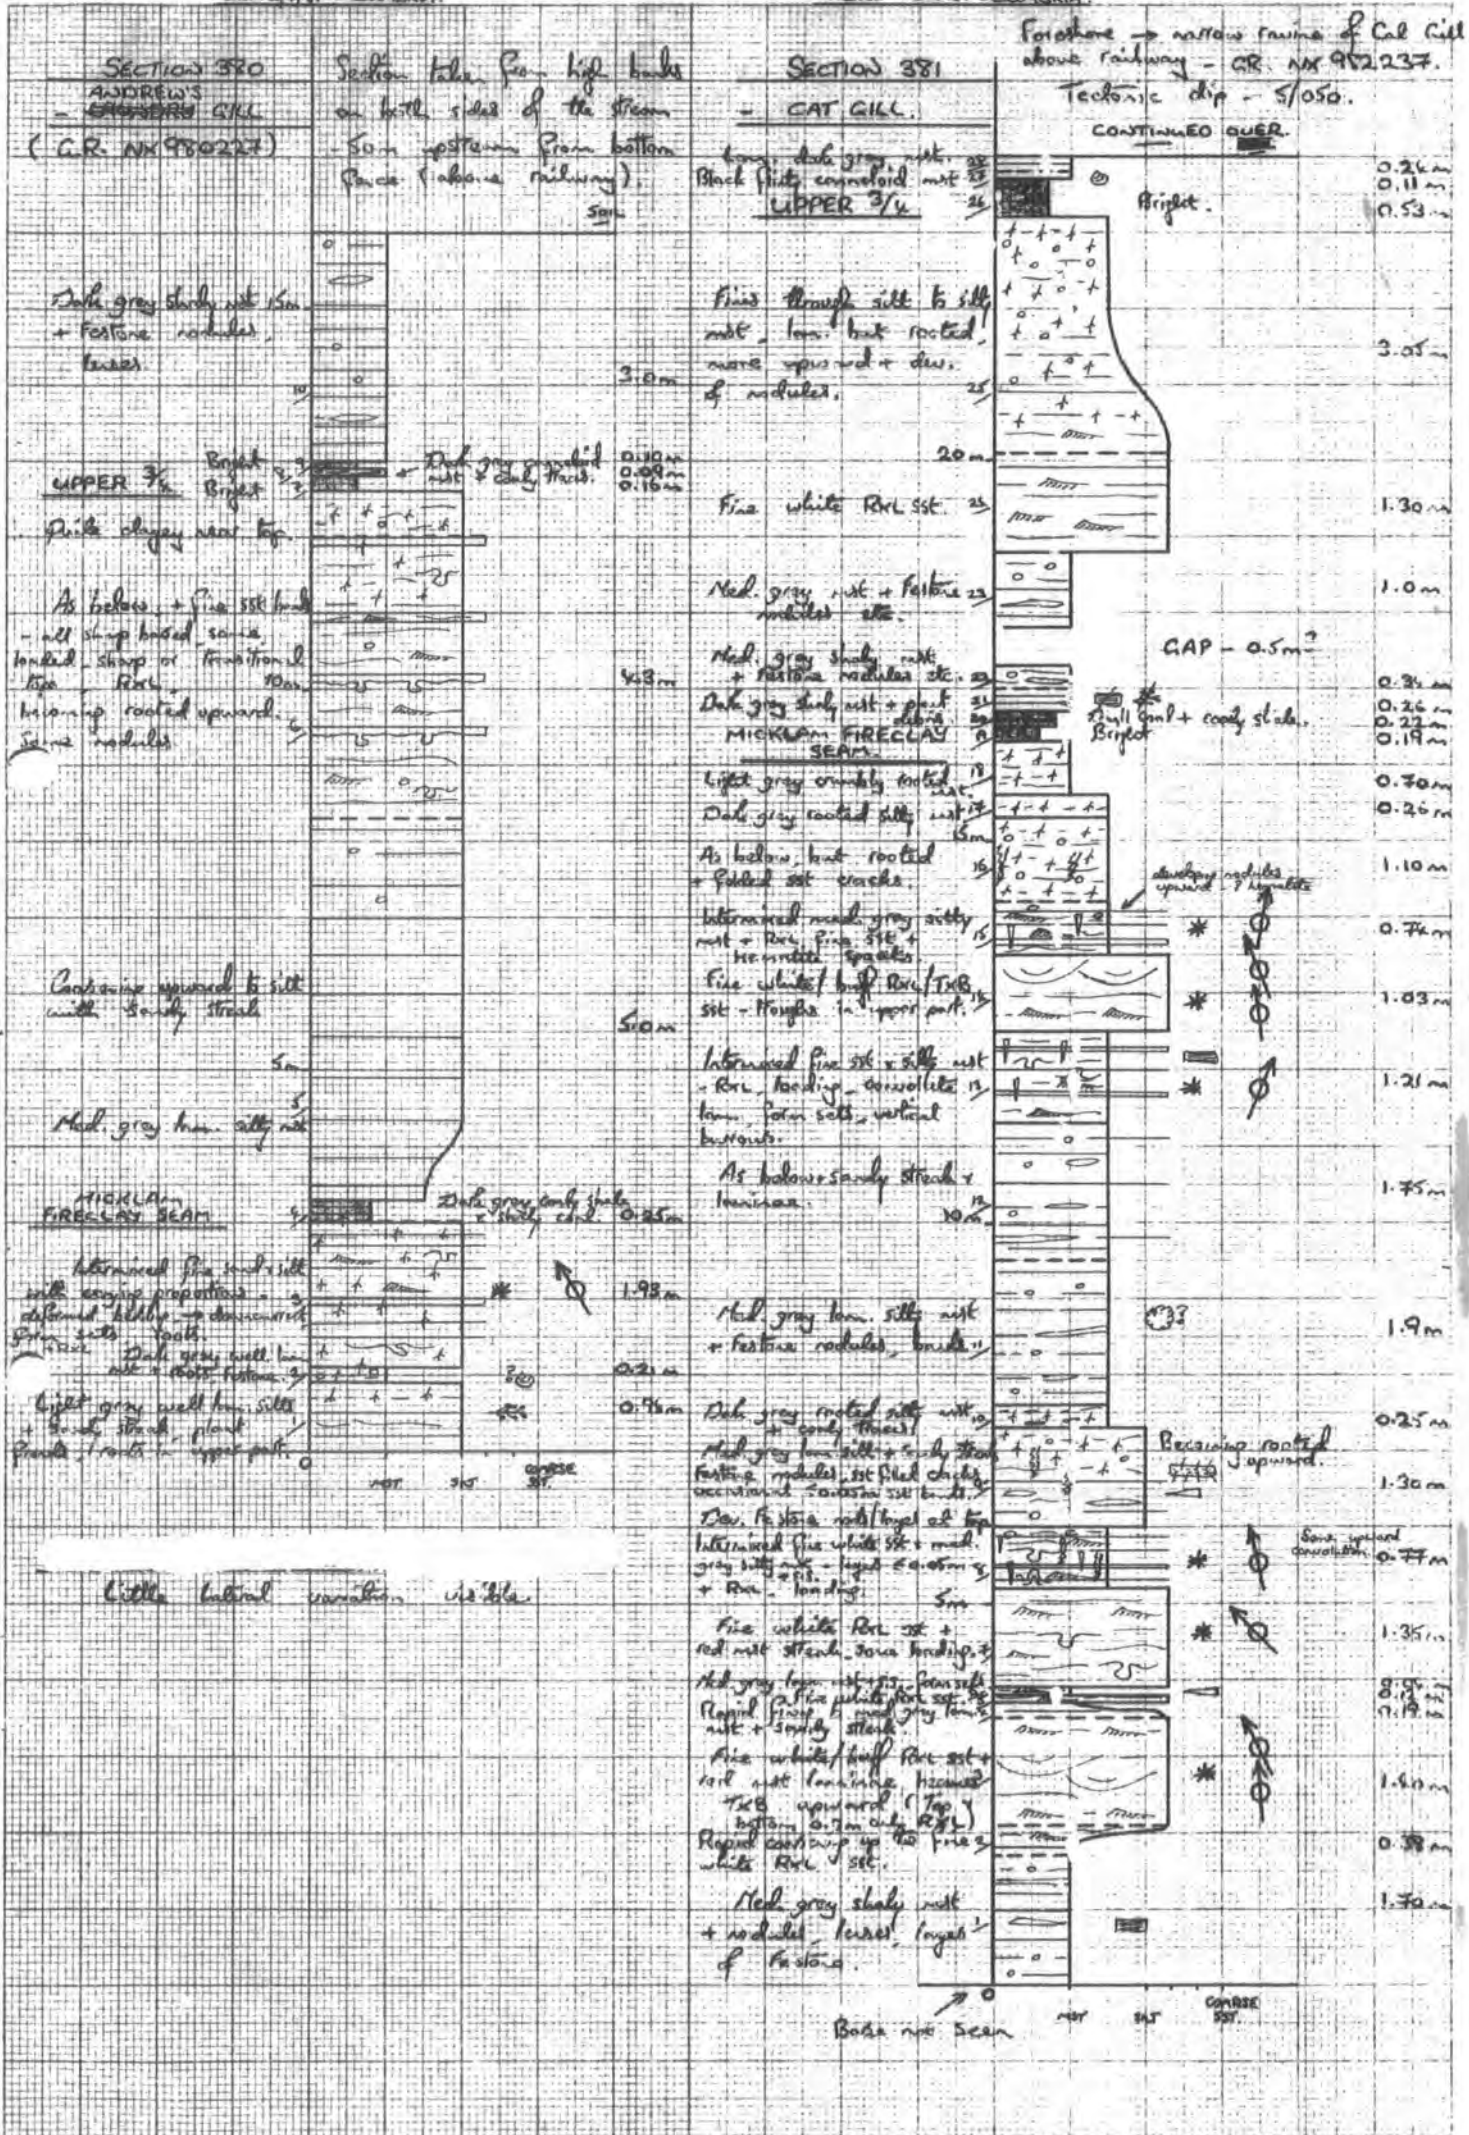 SECTION 380
ANDREW'S
- GILL
(G.R. NX 980227)
Section taken from high banks
on both sides of the stream
- 50m upstream from bottom
fence (above railway).
Soil
Dark grey shaly mst 15m
+ Festone nodules,
lenses.
10
3.0m
UPPER 3/4
Bright
Bright
Dark grey canneloid
mst + coaly traces.
0.10m
0.09m
0.16m
Quite clayey near top.
As below, + fine sst bands
- all sharp based, some
loaded - sharp or transitional
tops - RxL -
becoming rooted upward.
Some nodules
10m
6
4.3m
Coarsening upward to silt
with sandy streak
5.0m
5m
5
Med. grey lam. silty mst
MICKLAM
FIRECLAY SEAM
4
Dark grey coaly shale
+ shaly coal.
0.25m
Intermixed fine sand + silt
with varying proportions -
deformed bedding → downcurrent
form sets. roots.
+ RxL
3
1.93m
Dark grey well lam
mst + roots, festone.
2
0.21m
Light grey well lam. silts
+ sandy streak, plant
frants, roots in upper part.
1
0.96m
0
MST
SLT
COARSE
SST.
Little lateral variation visible.
SECTION 381
- CAT GILL.
Foreshore → narrow ravine of Cat Gill
above railway - GR. NX 982237.
Tectonic dip - 5/050.
CONTINUED OVER.
Lam. dark grey mst. 28
0.24m
Black flinty canneloid mst 27
0.11m
UPPER 3/4
26
Bright.
0.53m
Fines through silt to silty
mst, lam. but rooted,
more upward + dev.
of nodules.
25
3.05m
20m
Fine white RxL sst.
1.30m
Med. grey mst + Festone 23
nodules etc.
1.0m
GAP - 0.5m ?
Med. grey shaly mst
+ Festone nodules etc. 22
0.34m
Dark grey shaly mst + plant 21
debris.
0.26m
20
Dull coal + coaly shale.
0.22m
MICKLAM FIRECLAY
SEAM.
19
Bright
0.19m
Light grey crumbly rooted 18
mst.
0.70m
Dark grey rooted silty mst 17
0.26m
15m
As below, but rooted
+ folded sst cracks.
16
1.10m
developing nodules
upward - ? hematite
Intermixed med. grey silty
mst + RxL fine sst +
hematite specks.
15
0.74m
Fine white/buff RxL/TXB
sst - troughs in upper part.
1.03m
Intermixed fine sst + silty mst
- RxL, loading, convolute 13
lam. form sets, vertical
burrows.
1.21m
As below + sandy streak +
laminae.
12
10m
1.75m
Med. grey lam. silty mst
+ Festone nodules, bands 11
1.9m
Dark grey rooted silty mst 10
+ coaly traces
0.25m
Med. grey lam silt + sandy streak
Festone nodules, sst filled cracks
occasional 0.05m sst bands.
9
Dev. Festone nods/layer at top
Becoming rooted
upward.
1.30m
Intermixed fine white sst + med.
grey silty mst - layers ≤ 0.05m 8
+ f.s.
+ RxL - loading.
Some upward
convolution.
0.77m
5m
Fine white RxL sst +
red mst streak, some loading. 7
1.35m
Med. grey lam. mst + s.s. form sets
Fine white RxL sst.
Rapid fining to med grey lam.
mst + sandy streak.
0.19m
Fine white/buff RxL sst +
red mst laminae, becomes
TXB upward (Top +
bottom 0.2m only RXL)
3
Rapid coarsening up to fine 2
white RxL sst.
0.38m
Med. grey shaly mst
+ nodules, lenses, layers
of Festone.
1
1.70m
0
Base not seen
MST
SLT
COARSE
SST.